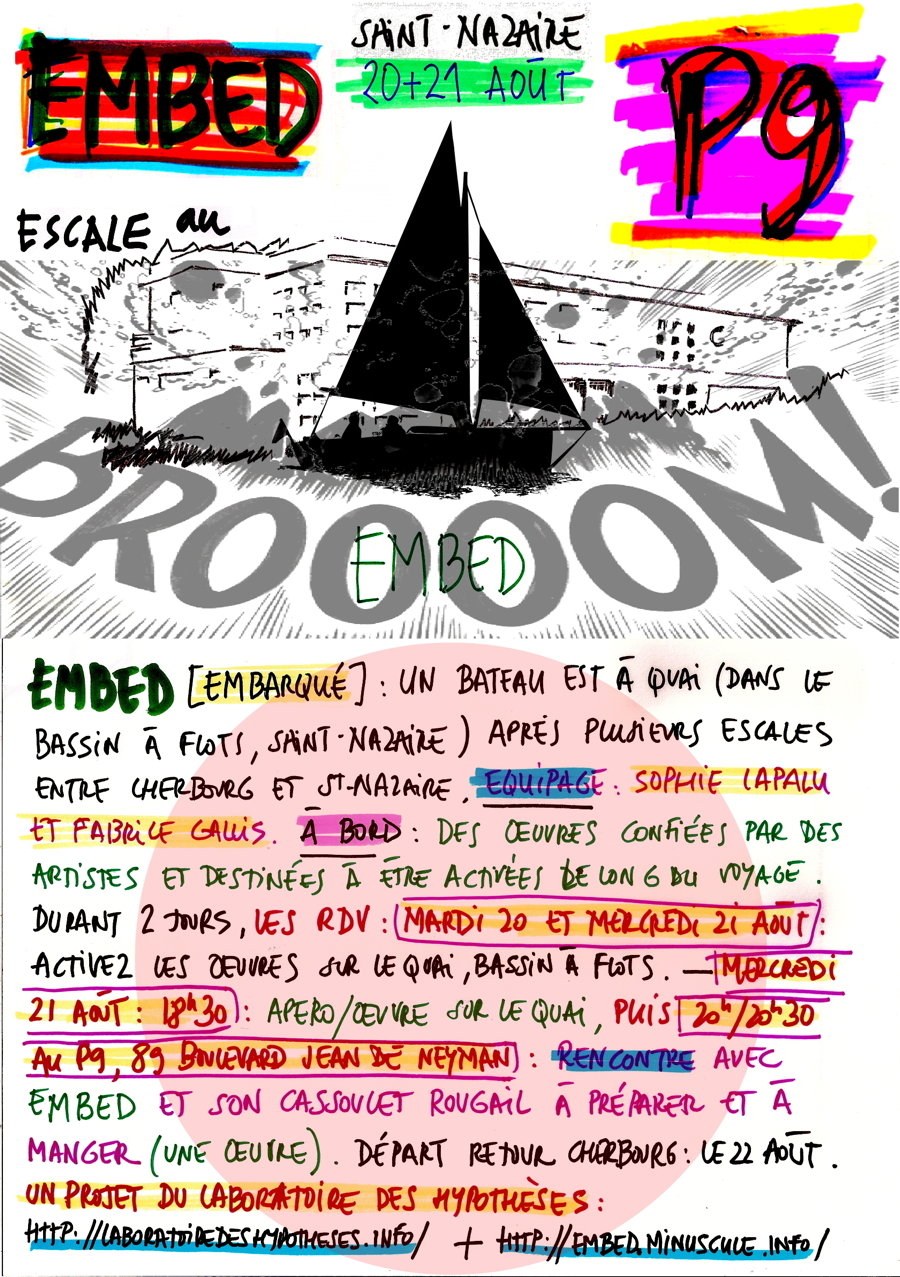 EMBED
SAINT-NAZAIRE
20+21 AOÛT
P9
ESCALE au
BROOOOM!
EMBED
EMBED [EMBARQUÉ] : UN BATEAU EST À QUAI (DANS LE
BASSIN À FLOTS, SAINT-NAZAIRE) APRÈS PLUSIEURS ESCALES
ENTRE CHERBOURG ET ST-NAZAIRE. EQUIPAGE : SOPHIE LAPALU
ET FABRICE GALLIS. À BORD : DES ŒUVRES CONFIÉES PAR DES
ARTISTES ET DESTINÉES À ÊTRE ACTIVÉES LE LONG DU VOYAGE.
DURANT 2 JOURS, LES RDV : MARDI 20 ET MERCREDI 21 AOÛT :
ACTIVEZ LES ŒUVRES SUR LE QUAI, BASSIN À FLOTS. — MERCREDI
21 AOÛT : 18h30 : APERO/ŒUVRE SUR LE QUAI, PUIS 20h/20h30
AU P9, 89 BOULEVARD JEAN DE NEYMAN : RENCONTRE AVEC
EMBED ET SON CASSOULET ROUGAIL À PRÉPARER ET À
MANGER (UNE ŒUVRE). DÉPART RETOUR CHERBOURG : LE 22 AOÛT.
UN PROJET DU LABORATOIRE DES HYPOTHÈSES :
HTTP://LABORATOIREDESHYPOTHESES.INFO/ + HTTP://EMBED.MINUSCULE.INFO/